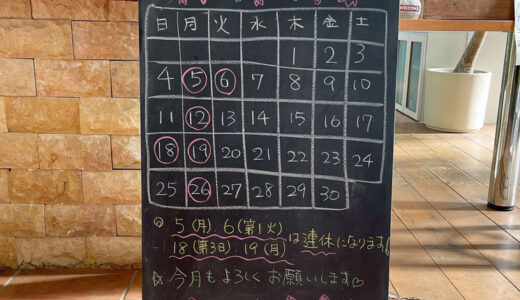 WELCOME
日 月 火 水 木 金 土
1 2 3
4 5 6 7 8 9 10
11 12 13 14 15 16 17
18 19 20 21 22 23 24
25 26 27 28 29 30
5(月) 6(第1火)
18(第3日)・19(月) は連休になります!
☆ 今月もよろしくお願いします♡